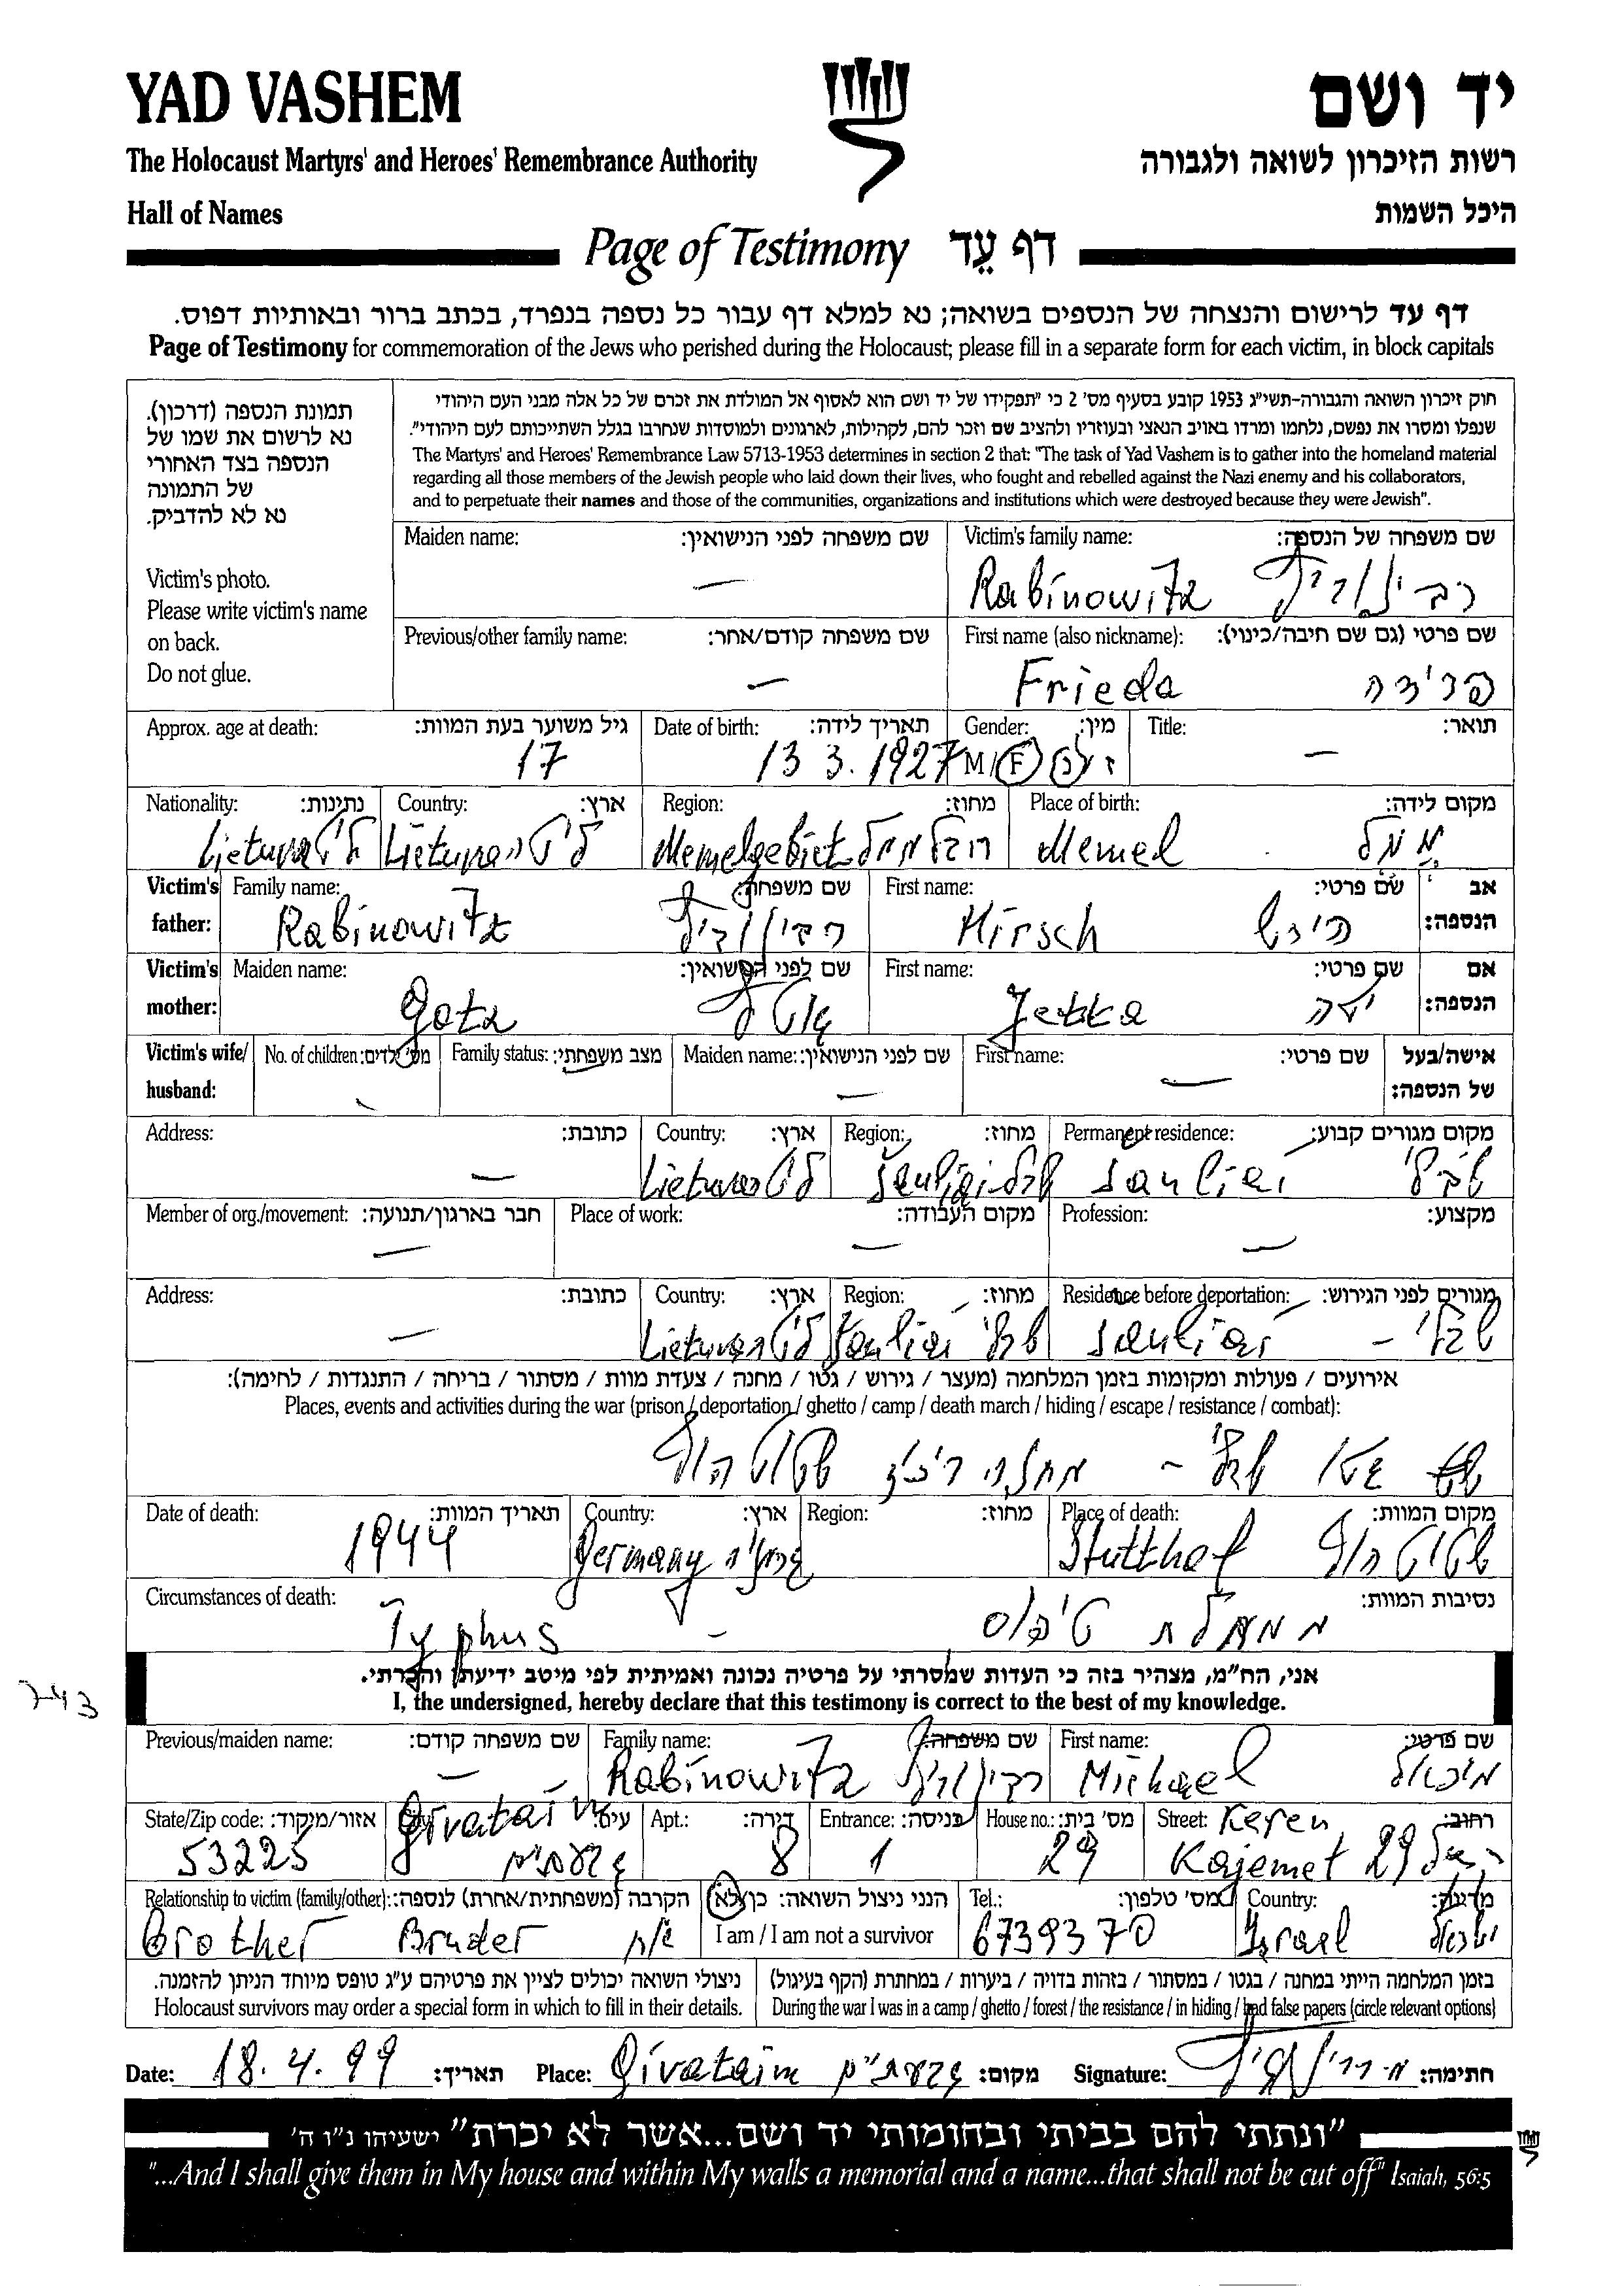 YAD VASHEM
יד ושם
The Holocaust Martyrs' and Heroes' Remembrance Authority
רשות הזיכרון לשואה ולגבורה
Hall of Names
היכל השמות
Page of Testimony דף עֵד
דף עד לרישום והנצחה של הנספים בשואה; נא למלא דף עבור כל נספה בנפרד, בכתב ברור ובאותיות דפוס.
Page of Testimony for commemoration of the Jews who perished during the Holocaust; please fill in a separate form for each victim, in block capitals
תמונת הנספה (דרכון).
נא לרשום את שמו של
הנספה בצד האחורי
של התמונה
נא לא להדביק.
Victim's photo.
Please write victim's name
on back.
Do not glue.
חוק זיכרון השואה והגבורה-תשי"ג 1953 קובע בסעיף מס' 2 כי "תפקידו של יד ושם הוא לאסוף אל המולדת את זכרם של כל אלה מבני העם היהודי
שנפלו ומסרו את נפשם, נלחמו ומרדו באויב הנאצי ובעוזריו ולהציב שם וזכר להם, לקהילות, לארגונים ולמוסדות שנחרבו בגלל השתייכותם לעם היהודי".
The Martyrs' and Heroes' Remembrance Law 5713-1953 determines in section 2 that: "The task of Yad Vashem is to gather into the homeland material
regarding all those members of the Jewish people who laid down their lives, who fought and rebelled against the Nazi enemy and his collaborators,
and to perpetuate their names and those of the communities, organizations and institutions which were destroyed because they were Jewish".
Maiden name: שם משפחה לפני הנישואין: Victim's family name: שם משפחה של הנספה:
— Rabinowitz רבינוביץ
Previous/other family name: שם משפחה קודם/אחר: First name (also nickname): שם פרטי (גם שם חיבה/כינוי):
— Frieda פרידה
Approx. age at death: גיל משוער בעת המוות: Date of birth: תאריך לידה: Gender: מין: Title: תואר:
17 13 3. 1927 M/F ז/נ —
Nationality: נתינות: Country: ארץ: Region: מחוז: Place of birth: מקום לידה:
Lietuva ליטא Lietuva ליטא Memelgebiet חבל ממל Memel ממל
Victim's Family name: שם משפחה: First name: שם פרטי: אב
father: Rabinowitz רבינוביץ Hirsch הירש הנספה:
Victim's Maiden name: שם לפני הנישואין: First name: שם פרטי: אם
mother: Gotz Jetta יטה הנספה:
Victim's wife/ No. of children: מס' ילדים: Family status: מצב משפחתי: Maiden name: שם לפני הנישואין: First name: שם פרטי: אישה/בעל
husband: — — של הנספה:
Address: כתובת: Country: ארץ: Region: מחוז: Permanent residence: מקום מגורים קבוע:
— Lietuva ליטא Šauliai שבלי Šauliai שבלי
Member of org./movement: חבר בארגון/תנועה: Place of work: מקום העבודה: Profession: מקצוע:
— — —
Address: כתובת: Country: ארץ: Region: מחוז: Residence before deportation: מגורים לפני הגירוש:
— Lietuva ליטא Šauliai שבלי Šauliai שבלי -
אירועים / פעולות ומקומות בזמן המלחמה (מעצר / גירוש / גטו / מחנה / צעדת מוות / מסתור / בריחה / התנגדות / לחימה):
Places, events and activities during the war (prison / deportation / ghetto / camp / death march / hiding / escape / resistance / combat):
גטו שבלי - מחנה ריכוז שטוטהוף
Date of death: תאריך המוות: Country: ארץ: Region: מחוז: Place of death: מקום המוות:
1944 Germany גרמניה Stutthof שטוטהוף
Circumstances of death: נסיבות המוות:
Typhus - ממחלת טיפוס
אני, הח"מ, מצהיר בזה כי העדות שמסרתי על פרטיה נכונה ואמיתית לפי מיטב ידיעתי והכרתי.
I, the undersigned, hereby declare that this testimony is correct to the best of my knowledge.
743
Previous/maiden name: שם משפחה קודם: Family name: שם משפחה: First name: שם פרטי:
— Rabinowitz רבינוביץ Michael מיכאל
State/Zip code: אזור/מיקוד: City: עיר: Apt.: דירה: Entrance: כניסה: House no.: מס' בית: Street: רחוב:
53225 Givataim גבעתיים 8 1 29 Keren Kajemet 29
Relationship to victim (family/other): הקרבה (משפחתית/אחרת) לנספה: הנני ניצול השואה: כן/לא Tel.: מס' טלפון: Country: מדינה:
Brother Bruder אח I am / I am not a survivor 6739370 Israel ישראל
ניצולי השואה יכולים לציין את פרטיהם ע"ג טופס מיוחד הניתן להזמנה.
Holocaust survivors may order a special form in which to fill in their details.
בזמן המלחמה הייתי במחנה / בגטו / במסתור / בזהות בדויה / ביערות / במחתרת (הקף בעיגול)
During the war I was in a camp / ghetto / forest / the resistance / in hiding / had false papers (circle relevant options)
Date: 18.4.99 תאריך: Place: Givataim גבעתיים מקום: Signature: חתימה:
"ונתתי להם בביתי ובחומותי יד ושם...אשר לא יכרת" ישעיהו נ"ו ה'
"...And I shall give them in My house and within My walls a memorial and a name...that shall not be cut off" Isaiah, 56:5